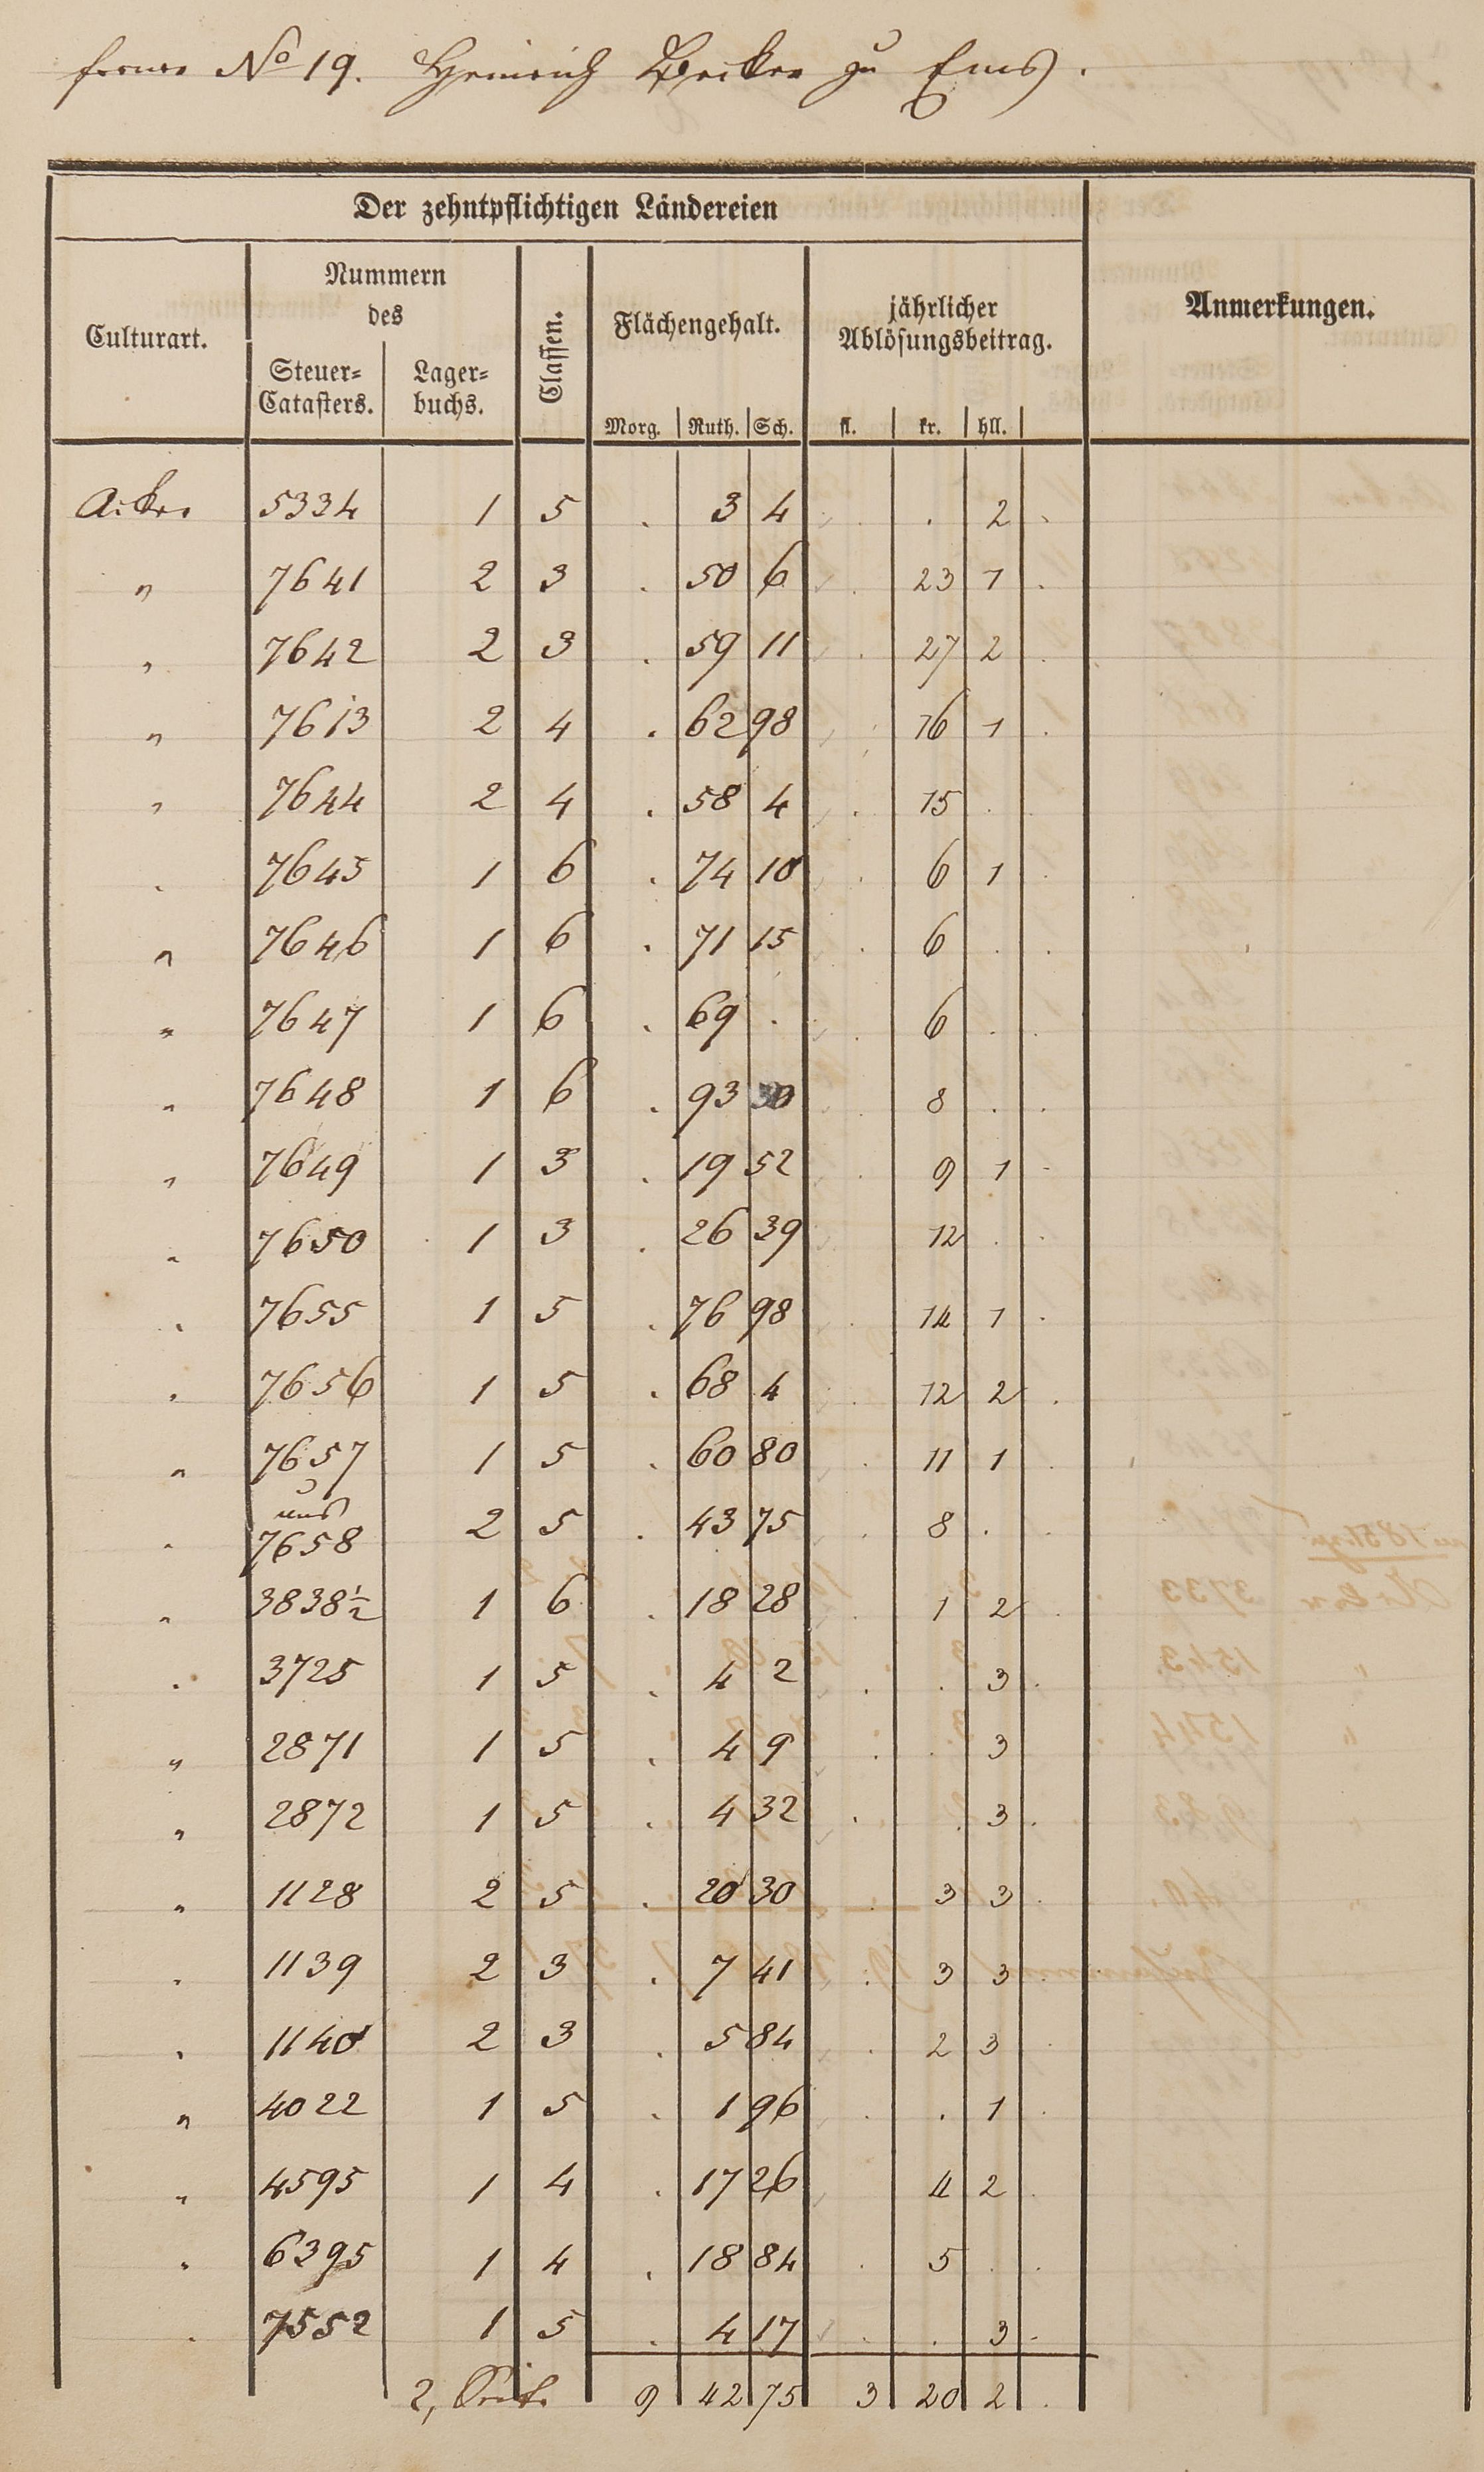 ferner No 19. Heinrich Becker zu Ems.
Der zehntpflichtigen Ländereien
Anmerkungen.
Culturart.
Nummern des
Steuer-Catasters.
Lager-buchs.
Classen.
Flächengehalt.
Morg. Ruth. Sch.
jährlicher Ablösungsbeitrag.
fl. kr. hll.
Acker 5334 1 5 . 3 4 . . 2 .
" 7641 2 3 . 50 6 . 23 1 .
" 7642 2 3 . 59 11 . 27 2 .
" 7613 2 4 . 62 98 . 16 1 .
" 7644 2 4 . 58 4 . 15 .
" 7645 1 6 . 74 10 . 6 1 .
" 7646 1 6 . 71 15 . 6 . .
" 7647 1 6 . 69 . . 6 . .
" 7648 1 6 . 93 30 . 8 . .
" 7649 1 3 . 19 52 9 1 -
" 7650 1 3 . 26 39 12 . .
" 7655 1 5 . 76 98 . 14 1 .
" 7656 1 5 . 68 4 . 12 2 .
" 7657 1 5 . 60 80 . 11 1 .
und
" 7658 2 5 . 43 75 . 8 . .
" 3838½ 1 6 . 18 28 . 1 2 .
" 3725 1 5 . 4 2 . . 3 .
" 2871 1 5 . 4 9 . . 3
" 2872 1 5 . 4 32 . . 3 .
" 1128 2 5 . 20 30 . 3 3 .
" 1139 2 3 . 7 41 . 3 3 .
" 1140 2 3 . 5 84 . 2 3 .
" 4022 1 5 . 1 96 . . 1 .
" 4595 1 4 . 17 26 4 2 .
" 6395 1 4 . 18 84 . 5 . .
" 7552 1 5 . 4 17 . . 3 .
2, Seite 9 42 75 3 20 2 .